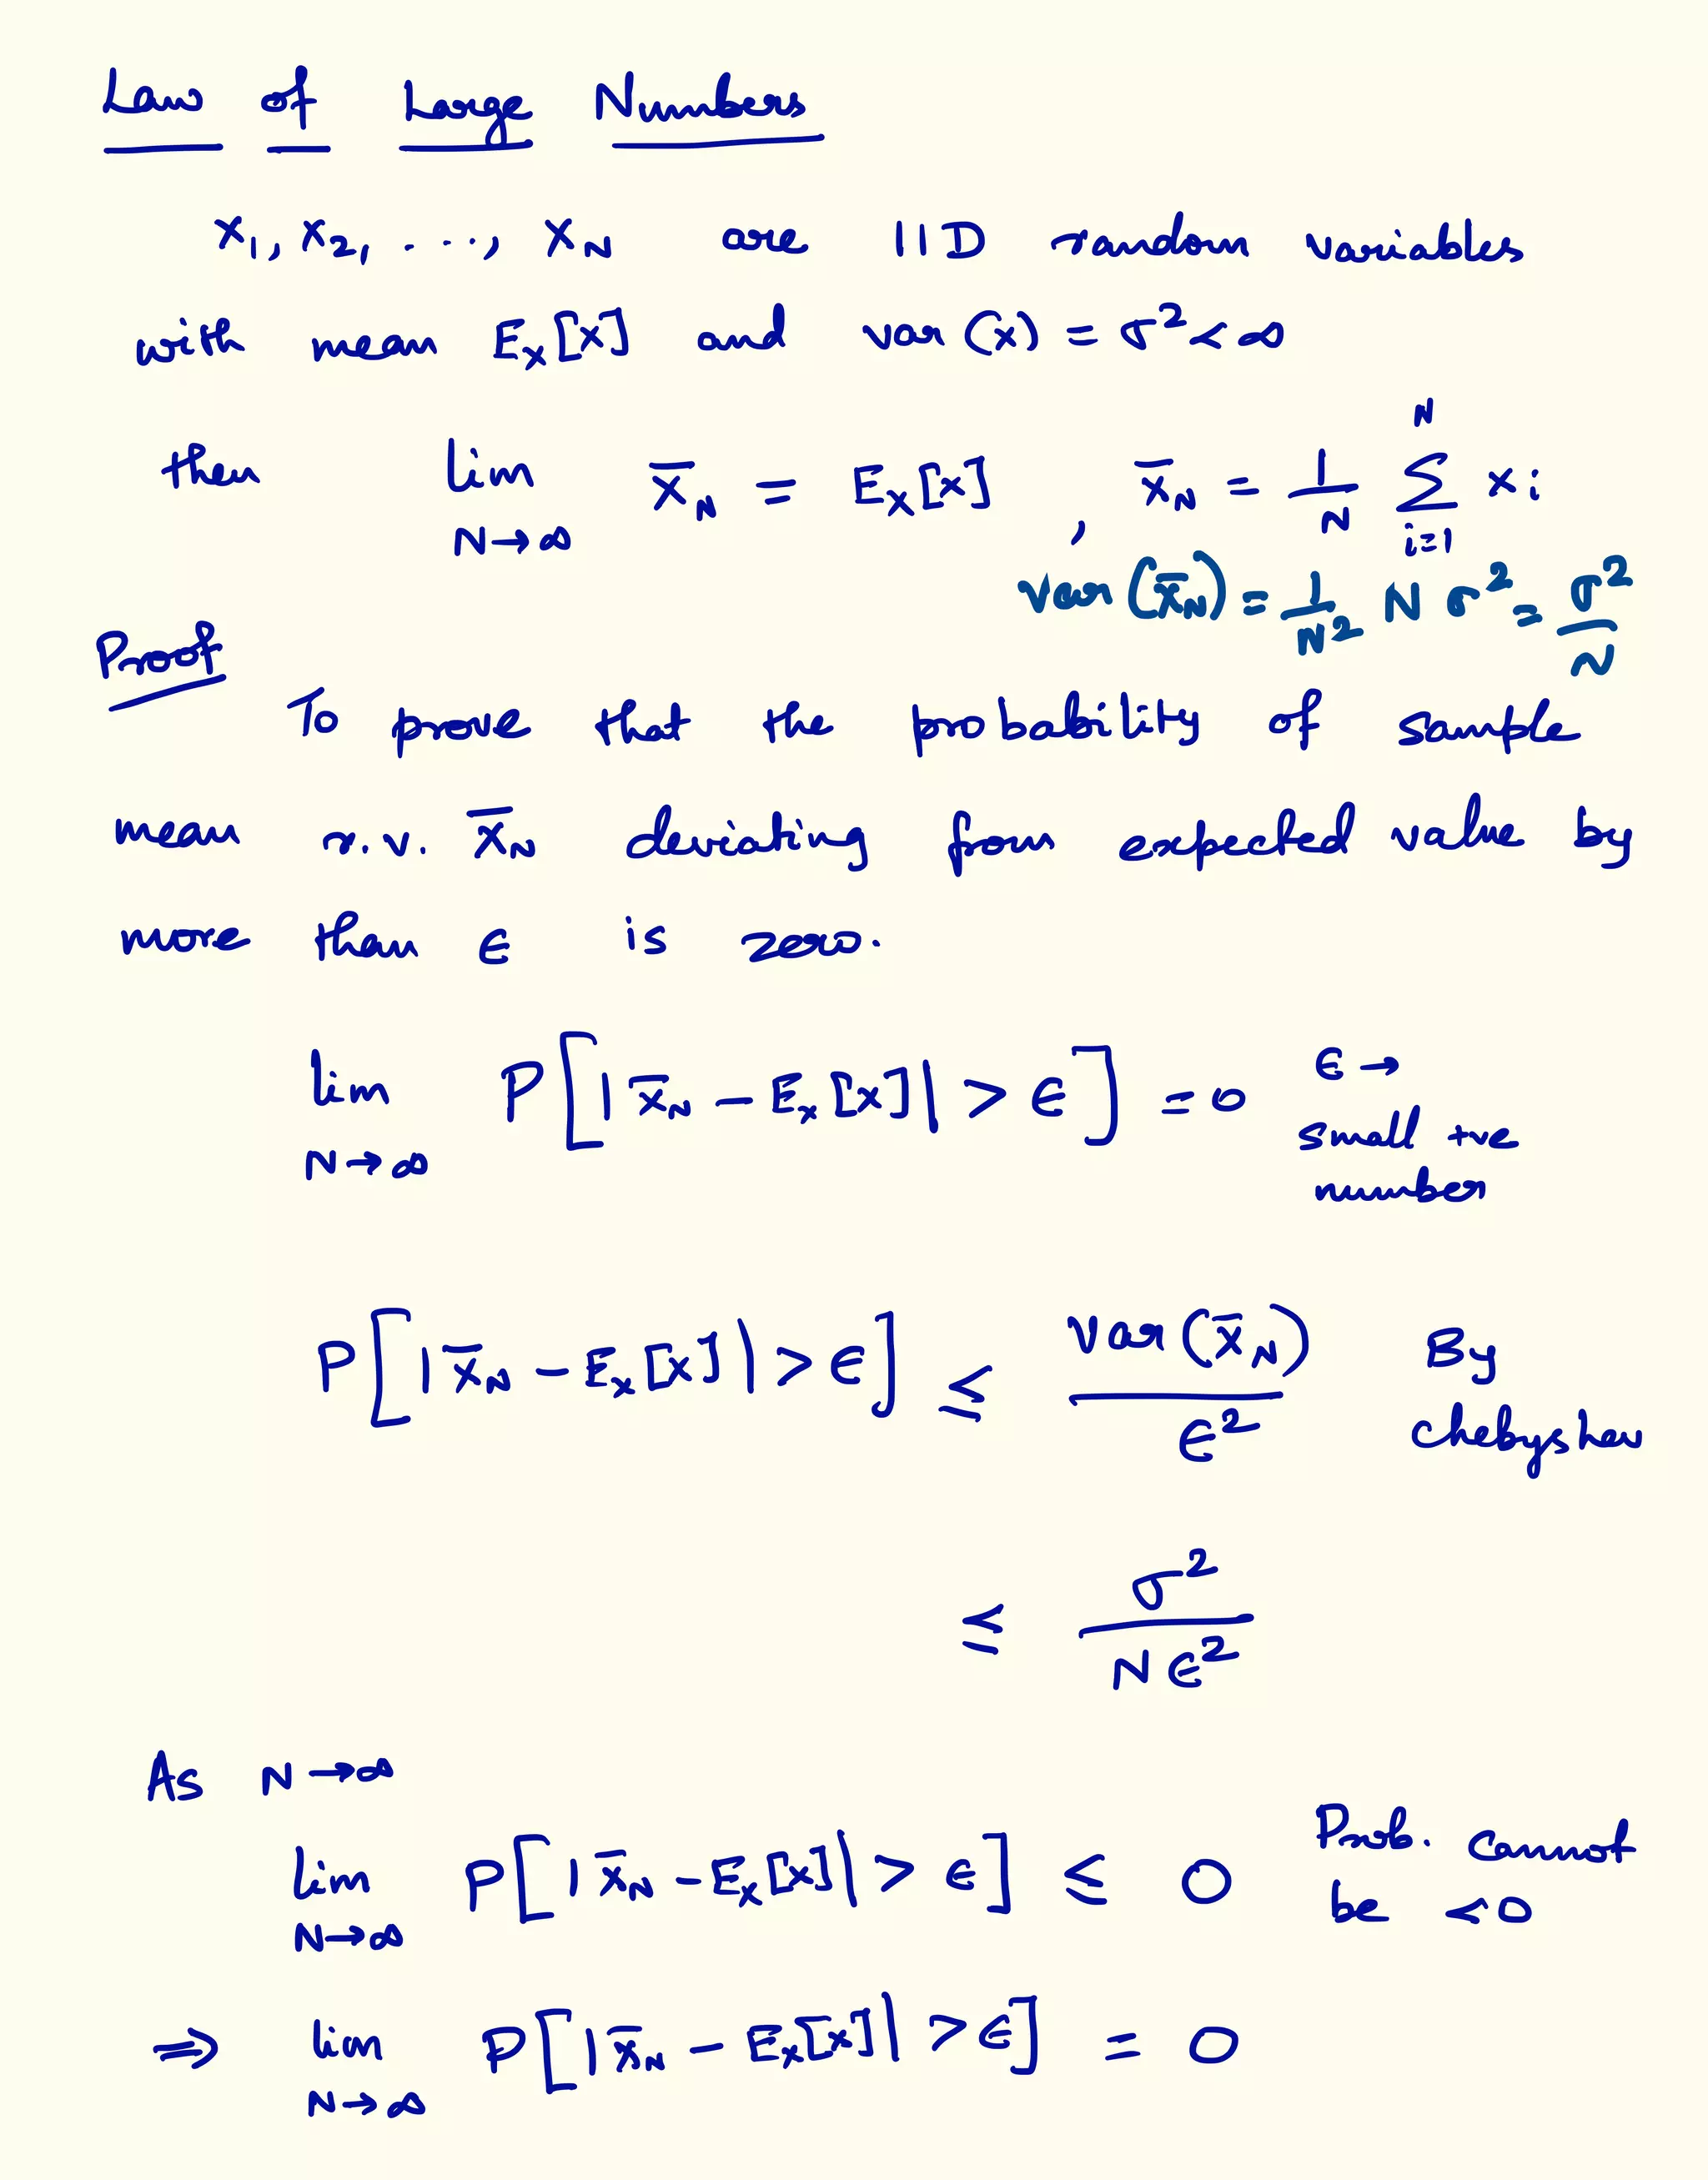 Law of Large Numbers
X₁, X₂, ..., X_N are IID random variables
with mean E_X[X] and var(X) = σ² < ∞
then lim_{N→∞} X̄_N = E_X[X] , X̄_N = 1/N Σ_{i=1}^{N} X_i
var(X̄_N) = 1/N² N σ² = σ²/N
Proof
To prove that the probability of sample
mean r.v. X̄_N deviating from expected value by
more than ϵ is zero.
lim_{N→∞} P[|X̄_N − E_X[X]| > ϵ] = 0 ϵ → small +ve number
P[|X̄_N − E_X[X]| > ϵ] ≤ Var(X̄_N)/ϵ² By chebyshev
≤ σ²/Nϵ²
As N → ∞
lim_{N→∞} P[|X̄_N − E_X[X]| > ϵ] ≤ 0 Prob. cannot be < 0
⇒ lim_{N→∞} P[|X̄_N − E_X[X]| > ϵ] = 0